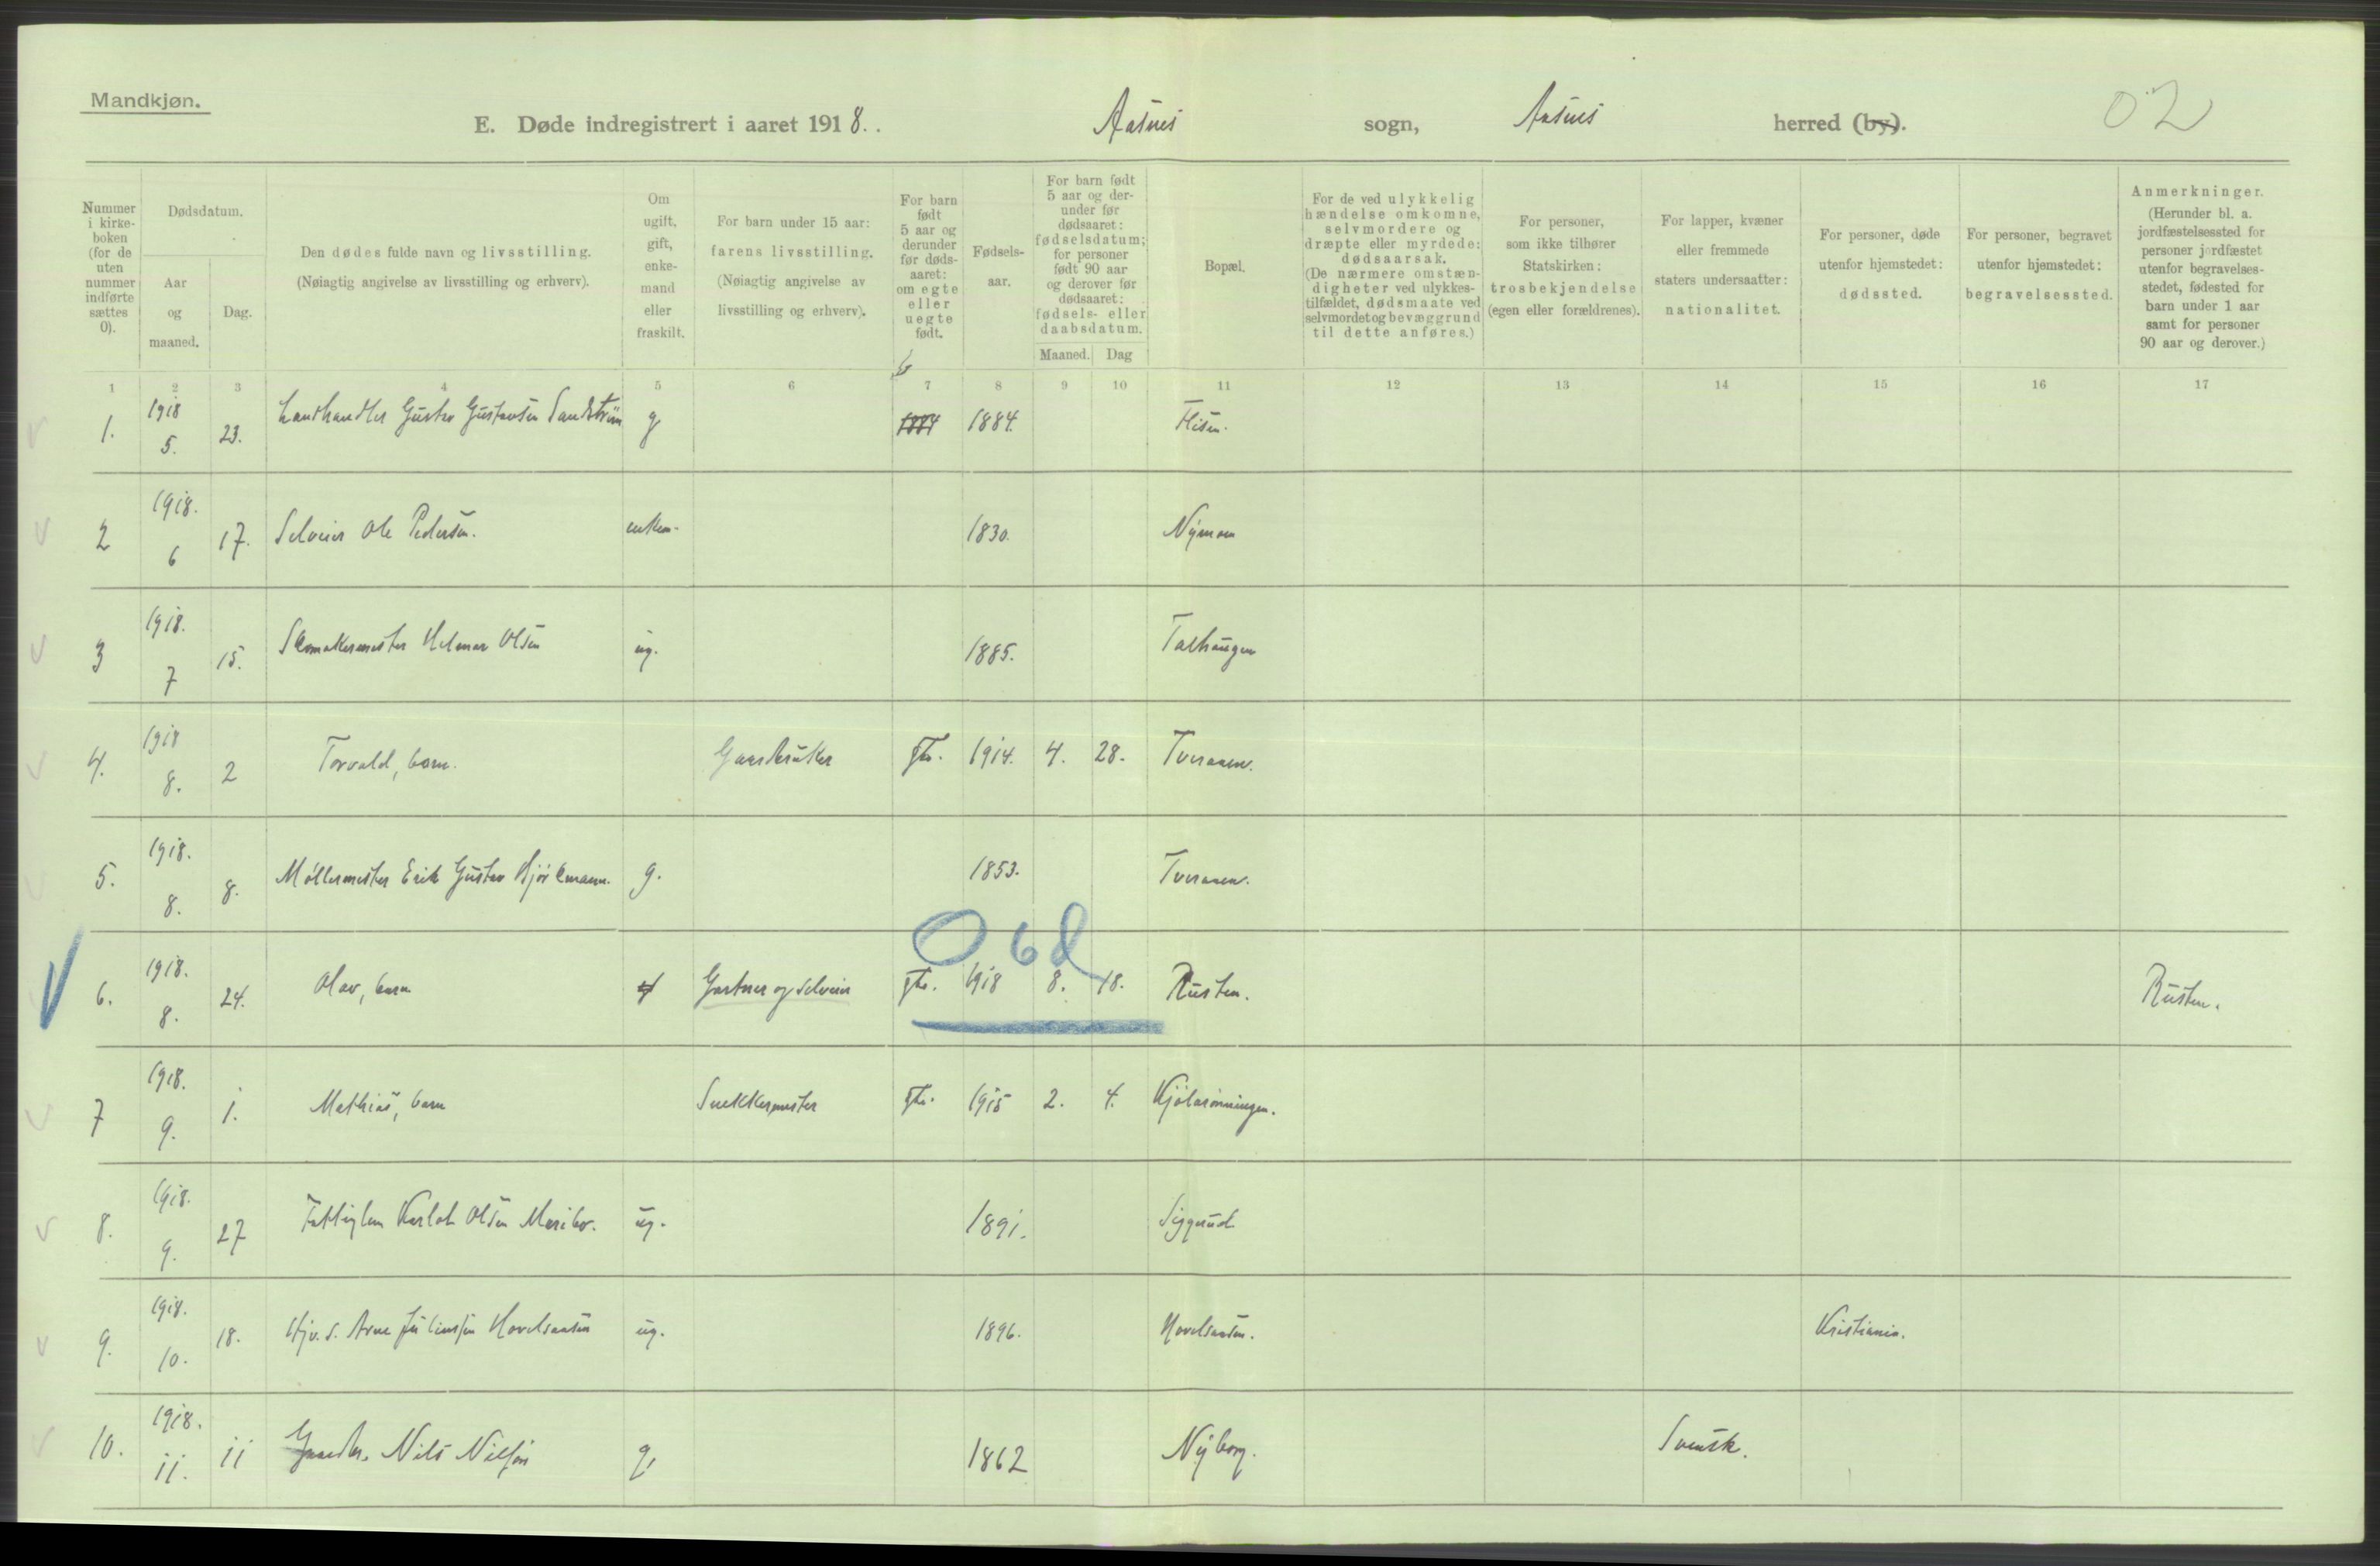 Mandkjøn.
E. Døde indregistrert i aaret 1918. Aasnes sogn, Aasnes herred (by).
02
Nummer i kirke-boken (for de uten nummer indførte sættes 0).
Dødsdatum.
Aar og maaned.
Dag.
Den dødes fulde navn og livsstilling. (Nøiagtig angivelse av livsstilling og erhverv).
Om ugift, gift, enke-mand eller fraskilt.
For barn under 15 aar: farens livsstilling. (Nøiagtig angivelse av livsstilling og erhverv).
For barn født 5 aar og derunder før døds-aaret: om egte eller uegte født.
Fødsels-aar.
For barn født 5 aar og der-under før dødsaaret: fødselsdatum; for personer født 90 aar og derover før dødsaaret: fødsels- eller daabsdatum.
Maaned. Dag
Bopæl.
For de ved ulykkelig hændelse omkomne, selvmordere og dræpte eller myrdede: dødsaarsak. (De nærmere omstæn-digheter ved ulykkes-tilfældet, dødsmaate ved selvmordet og bevæggrund til dette anføres.)
For personer, som ikke tilhører Statskirken: trosbekjendelse (egen eller forældrenes).
For lapper, kvæner eller fremmede staters undersaatter: nationalitet.
For personer, døde utenfor hjemstedet: dødssted.
For personer, begravet utenfor hjemstedet: begravelsessted.
Anmerkninger. (Herunder bl. a. jordfæstelsessted for personer jordfæstet utenfor begravelses-stedet, fødested for barn under 1 aar samt for personer 90 aar og derover.)
1 2 3 4 5 6 7 8 9 10 11 12 13 14 15 16 17
1. 1918 5. 23. Landhandler Gustav Gustavsen Sandström g 1884 1884. Flisen.
2 1918. 6 17. Selveier Ole Pedersen. enkem. 1830. Nymoen
3 1918. 7 15. Skomakermester Helmer Olsen ug. 1885. Talhaugen
4. 1918 8. 2 Torvald, barn. Gaardbruker gte. 1914. 4. 28. Tveraaen.
5. 1918. 8. 8. Möllermester Erik Gustav Björkmann. g. 1853. Tveraaen.
068
6. 1918. 8. 24. Olav, barn Gartner og selveier gte. 1918 8. 18. Rusten. Rusten.
7 1918. 9. 1. Mathias, barn Snekkermester gte. 1915 2. 4. Kjölarönningen.
8. 1918. 9. 27 Fattiglem Karl Olsen Moribo. ug. 1891.
9. 1918. 10. 18. Hjv. s. Arne Juliussen Hovelsaasen ug. 1896. Hovelsaasen. Kristiania.
10. 1918. 11. 11 Gaardbr. Nils Nilsson g. 1862 Nyborg. Svensk.